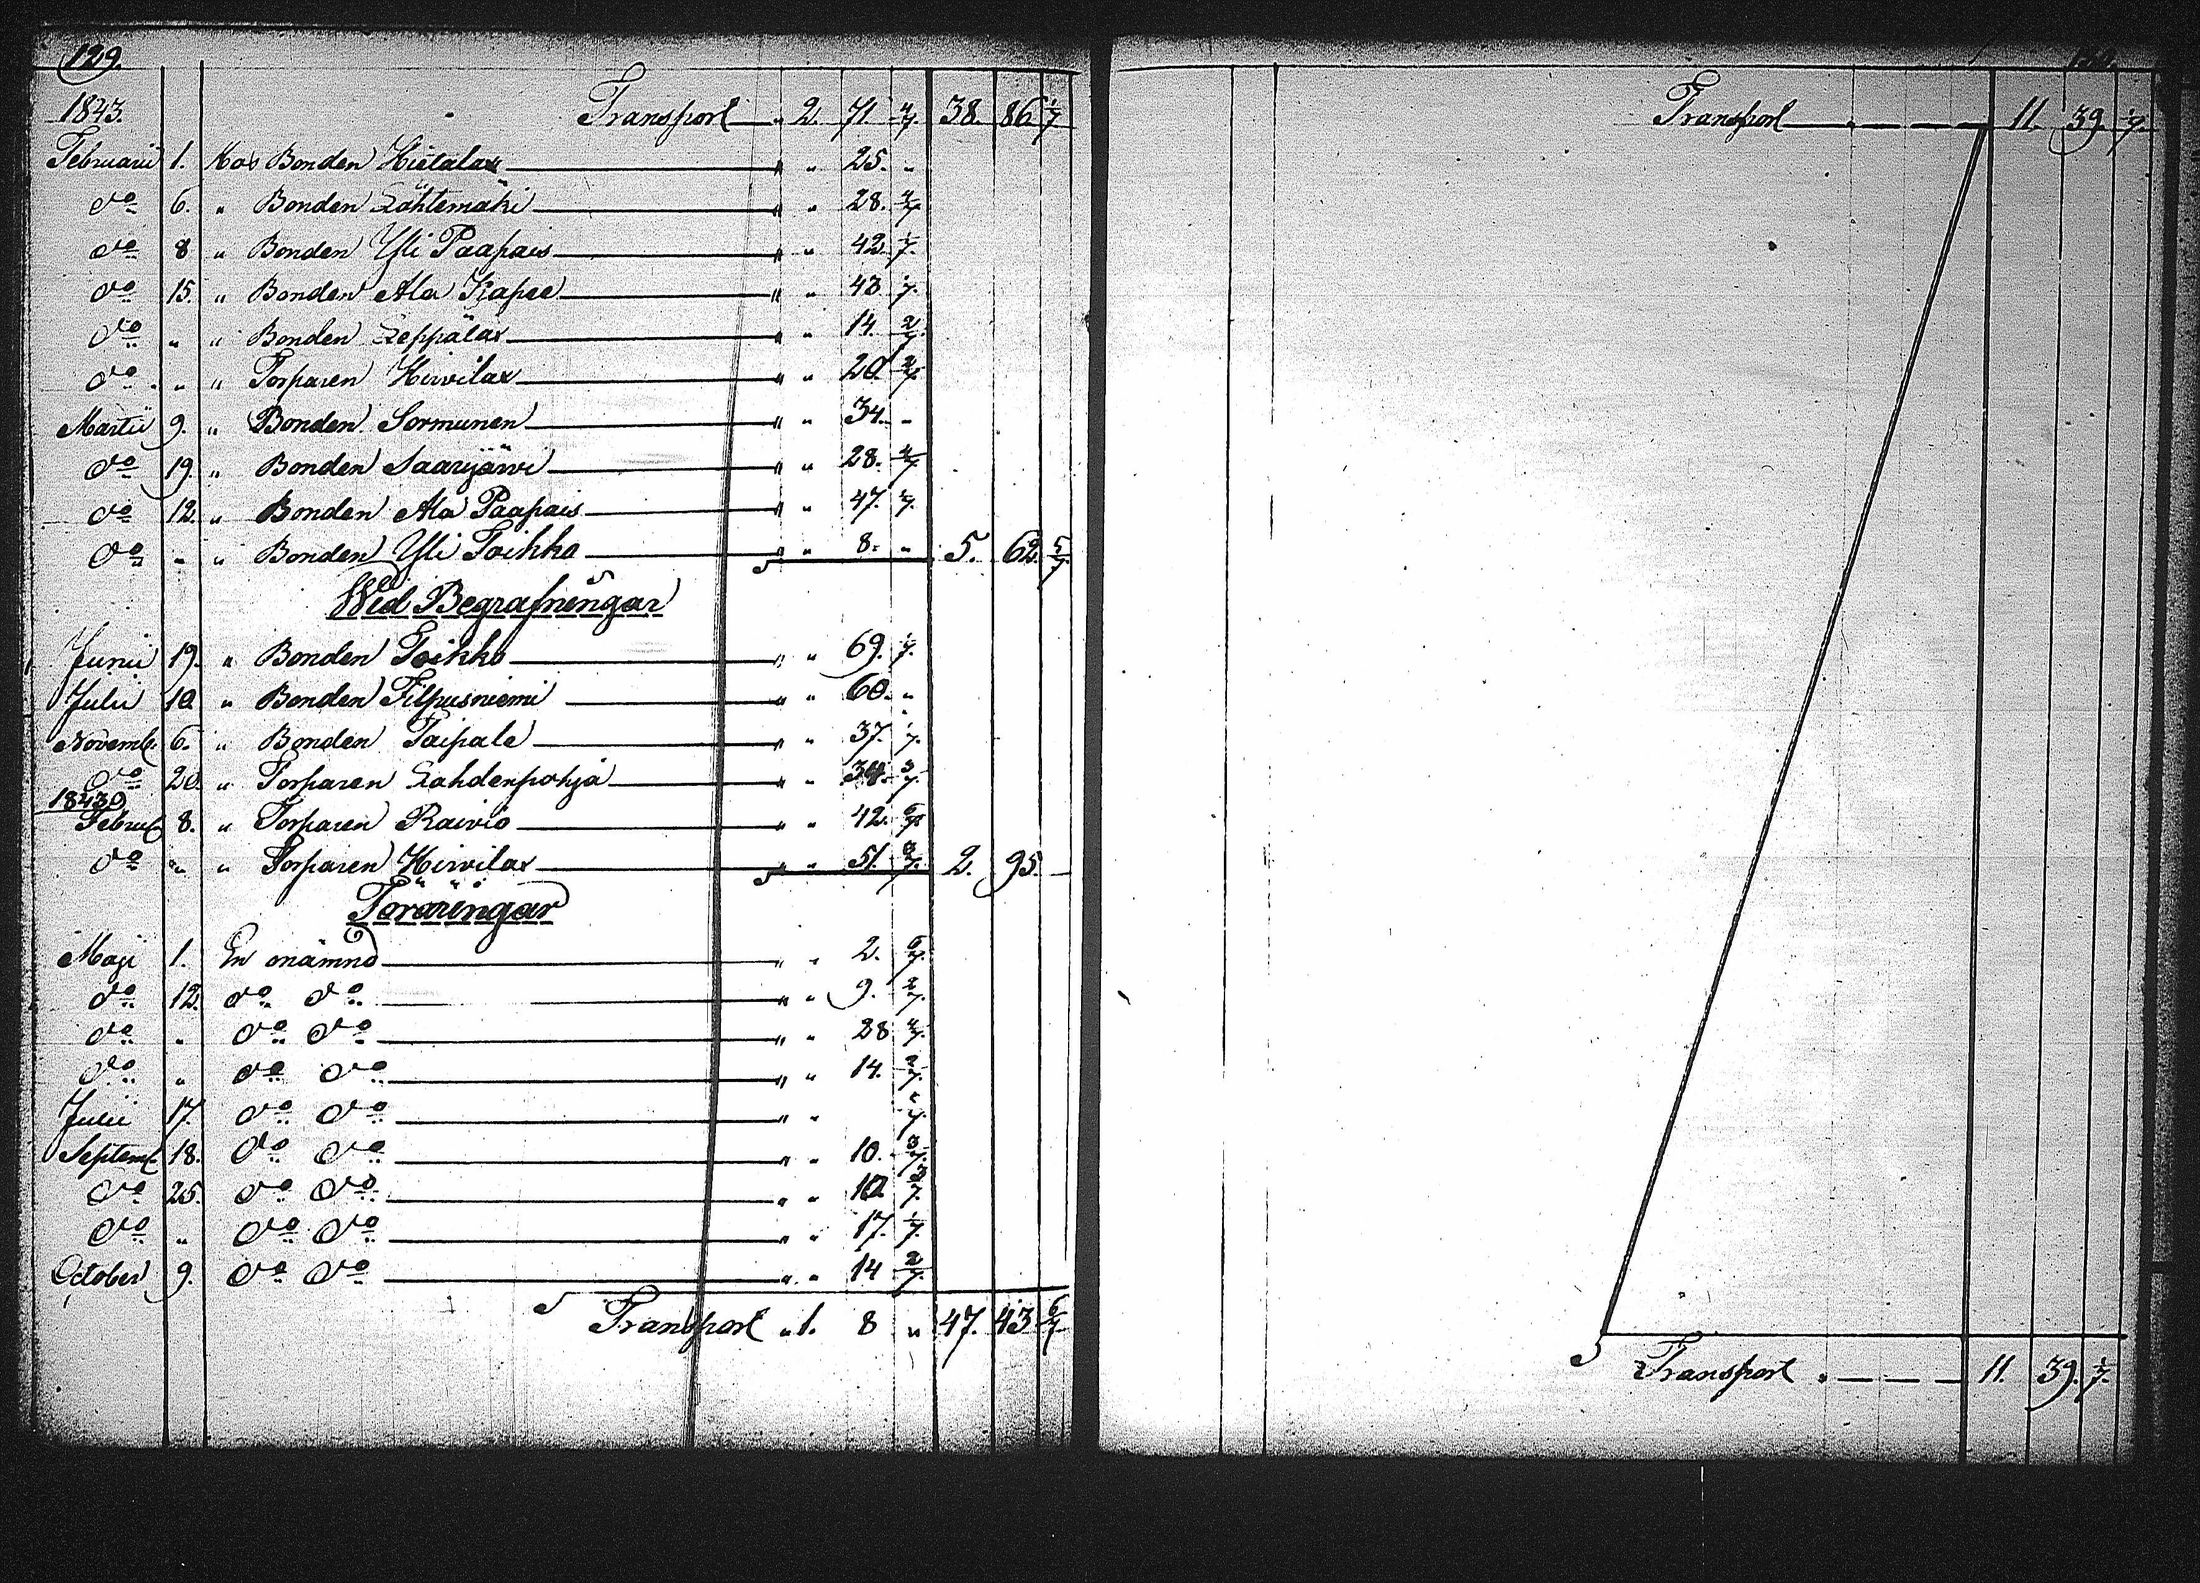 129.
1843. Transport „ 2. 71 4/7. 38. 86 1/7
Februarii 1. Hos Bonden Hietalax „ „ 25. „
do 6. „ Bonden Lähtemäki „ „ 28. 4/7.
do 8 „ Bonden Yli Paapais „ „ 42. 1/7.
do 15. „ Bonden Ala Kapee „ „ 43
do „ „ Bonden Leppälax „ „ 14. 2/7.
do „ „ Torparen Hirvilax „ „ 20.
Martii 9. „ Bonden Sormunen „ „ 34. „
do 19. „ Bonden Saarijärvi „ „ 28. 4/7
do 12. „ Bonden Ala Paapais „ „ 47.
do „ „ Bonden Yli Toikka „ „ 8. „ 5. 62. 5/7
Wid Begrafningar
Junii 19. „ Bonden Toikka „ „ 69. 1/7.
Julii 10 „ Bonden Filpusniemi „ „ 60. „
Novemb. 6. „ Bonden Taipale „ „ 37. 1/7.
do 20. „ Torparen Lahdenpohja „ „ 34. 3/7
1843
Febru 8. „ Torparen Raivio „ „ 42. 6/7
do „ „ Torparen Hirvilax „ „ 51. 3/7. 2. 95. —
Föräringar
Maji 1. En onämnd „ „ 2. 6/7.
do 12. do do „ „ 9. 2/7.
do „ do do „ „ 28 4/7.
do „ do do „ „ 14. 2/7.
Julii 17. do do „ „
Septemb 18. do do „ „ 10. 3/7.
do 25. do do „ „ 10 3/7.
do „ do do „ „ 17. 1/7.
October 9. do do „ „ 14 2/7.
Transport „ 1. 8 „ 47. 43 6/7
Transport „ — — — 11. 39. 1/7.
Transport „ — — — 11. 39. 1/7.